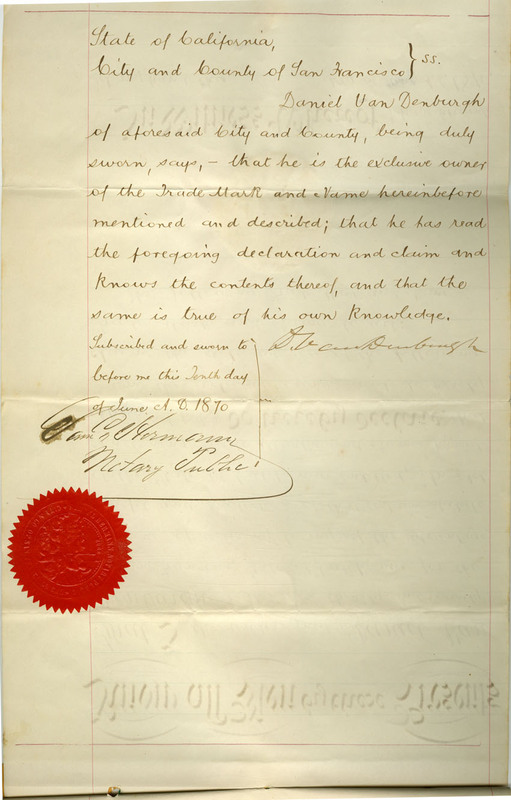 State of California,
City and County of San Francisco } ss.
Daniel Van Denburgh
of aforesaid City and County, being duly
sworn, says, – that he is the exclusive owner
of the Trade Mark and Name hereinbefore
mentioned and described; that he has read
the foregoing declaration and claim and
knows the contents thereof, and that the
same is true of his own knowledge.
D. Van Denburgh
Subscribed and sworn to
before me this Tenth day
of June A. D. 1870
Hermann
Notary Public